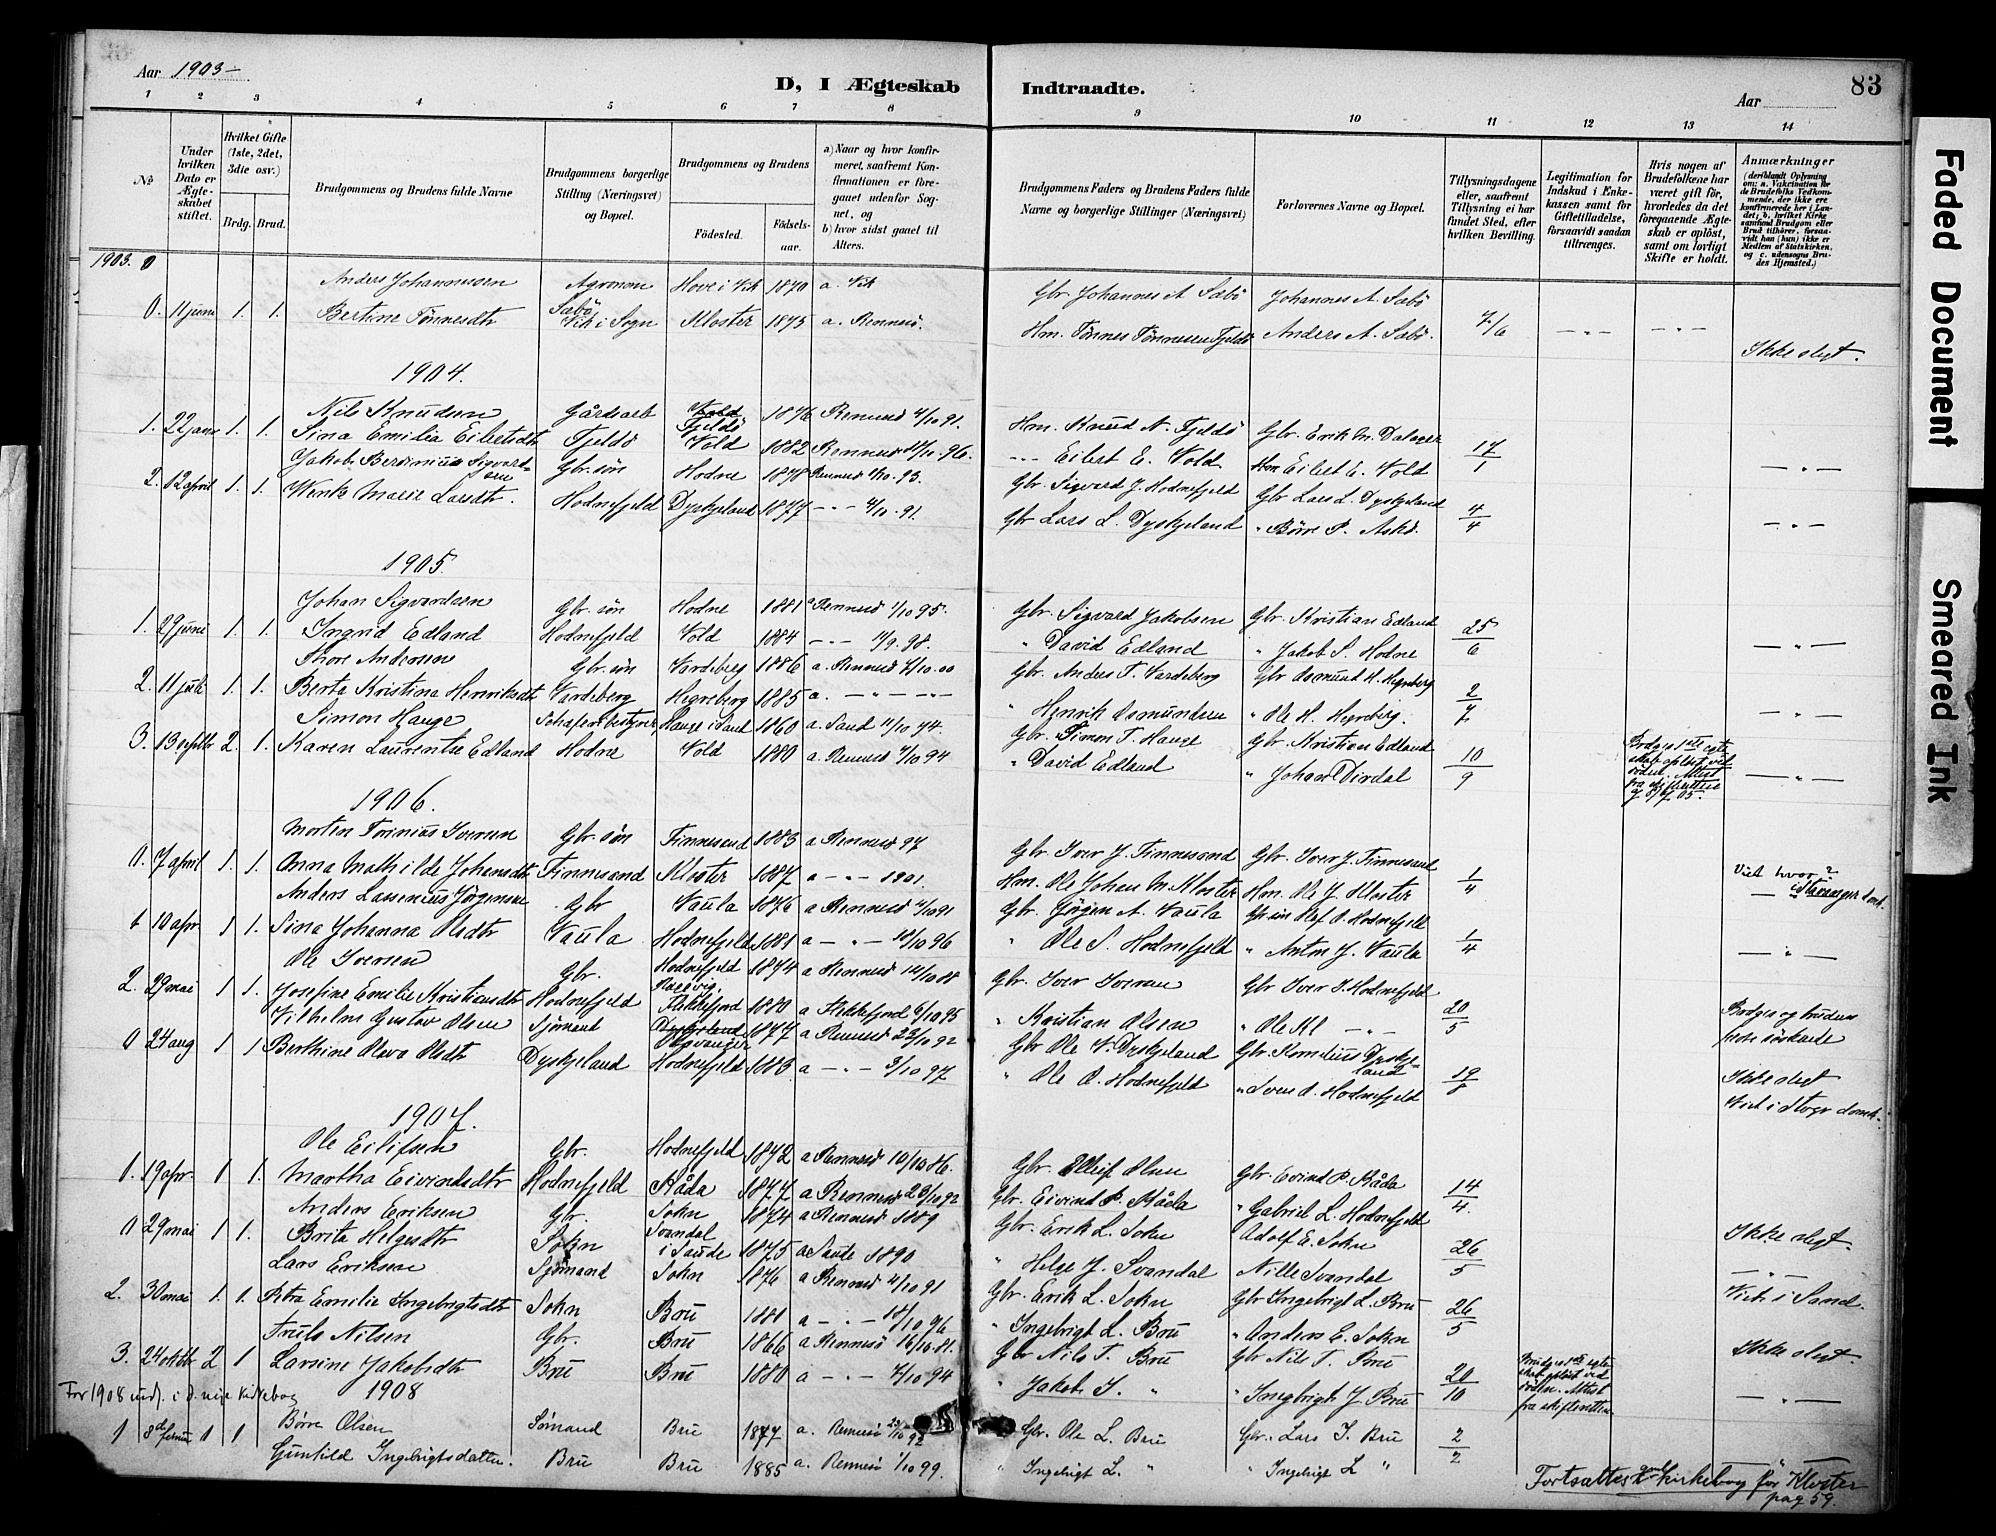 Aar 1903-
D, I Ægteskab Indtraadte.
Aar
83
1 2 3 4 5 6 7 8 9 10 11 12 13 14
No
Under hvilken Dato er Ægteskabet stiftet.
Hvilket Gifte (1ste, 2det, 3die osv.)
Brdg. Brud.
Brudgommens og Brudens fulde Navne
Brudgommens borgerlige Stilling (Næringsvei) og Bopæl.
Brudgommens og Brudens
Fødested. Fødselsaar.
a) Naar og hvor konfirmeret, saafremt Konfirmationen er foregaaet udenfor Sognet, og
b) hvor sidst gaaet til Alters.
Brudgommens Faders og Brudens Faders fulde Navne og borgerlige Stillinger (Næringsvei)
Forlovernes Navne og Bopæl.
Tillysningsdagene eller, saafremt Tillysning ei har fundet Sted, efter hvilken Bevilling.
Legitimation for Indskud i Enkekassen samt for Giftetilladelse, forsaavidt saadan tiltrænges.
Hvis nogen af Brudefolkene har været gift før, hvorledes da det foregaaende Ægteskab er opløst, samt om lovligt Skifte er holdt.
Anmærkninger (deriblandt Oplysning om: a. Vakcination for de Brudefolks Vedkommende, der ikke ere konfirmerede her i Landet; b. hvilket Kirkesamfund Brudgom eller Brud tilhører, forsaavidt han (hun) ikke er Medlem af Statskirken, og c. udensogns Brudes Hjemsted.)
1903. 0
Anders Johannesen Agronom Hove i Vik 1870 a. Vik Gbr Johannes A Sæbø Johannes A. Sæbø
0. 11 juni 1. 1. Bertine Tønnesdtr Sæbø Vik i Sogn Kloster 1875 a. Rennesö. Hm. Tönnes Tönnesen Fjeldö Anders A. Sæbö. 7/6 — " — — " —
Ikke slegt.
1904.
Nils Knudsen Gårdsarb Fjeldö 1876 Rennesö 4/10 91. Hm. Knud N. Fjeldö Gbr. Erik M.
1. 22 janr 1. 1. Sina Emilia Eilertsdtr Fjeldö Vold 1882 Rennesö 11/10. 96. Eilert E. Vold Hm Eilert E. Vold 17/1 — " —
Jakob Berdinius Sigvartsen Gbr. søn Hodne 1878 Rennesö 1/10. 93. Gbr. Sigvard J. Hodnefjeld Gbr Lars L. Dyskjeland
2. 12 april 1. 1. Wenke Marie Larsdtr. Hodnefjeld Dyskjeland 1877 — " — 4/10. 91. Gbr Lars L. Dyskjeland " Börre P. Askö. 4/4 — " —
1905.
Johan Sigvardsen Gbr. søn Hodne 1881 a Rennesö 1/10 95. Gbr. Sigvald Jakobsen Gbr. Kristian Edland
1. 29 juni 1. 1. Ingrid Edland Hodnefjeld Vold 1884 — " — 11/9. 98. " David Edland " Jakob S. Hodne 25/6 — " —
Thore Andersen Gbr. søn Vardeberg 1886 a. Rennesö 7/10.00 Gbr. Anders T. Vardeberg Gbr Osmund H. Hegreberg
2. 11 juli 1. 1. Berta Kristina Henriksdtr Vardeberg Hegreberg 1885 a. — " — " — " Henrik Osmundsen " Ole H. Hegreberg. 2/7 — " —
Simon Hauge Hauge i Sand 1860 a. Sand 11/10 74. Gbr. Simon T. Hauge Gbr. Kristian Edland
3. 13 septbr 2. 1. Karen Laurentse Edland Hodne Vold 1880 a. Rennesö 7/10 94 " David Edland " Johan Dirdal 10/9 Brdgs 1ste egteskab opløst ved Attest fra skifteretten 8/7 05. — " —
1906.
Morten Tønnius Iversen Gbr. søn Finnesand 1883 a Rennesö 97 Gbr. Iver J. Finnesand Gbr. Iver J. Finnesand
0. 7 april 1. 1. Anna Mathilde Johansdtr Finnesand Kloster 1887 a — " — 1901. Hm. Ole Johan M. Kloster Hm. Ole J. Kloster 1/4 Viet hvor?
Anders Lassenius Jörgensen Gbr Vaula 1876 a Rennesö 4/10 91 Gbr. Jörgen A. Vaula Gbr søn Olaf O. Hodnefjeld
10 apr 1 1. Sina Johanna Olsdtr Vaula Hodnefjeld 1881 a — " — 11/10 96 " Ole S. Hodnefjeld " Anton J. Vaula 1/4 — " —
Ole Iversen Gbr. Hodnefjeld 1874 a Rennesö 14/10 88 Gbr. Iver Iversen Gbr Iver I. Hodnefjeld
2. 29 mai 1 1. Josefine Emilie Kristiansdtr Hodnefjeld Flekkefjord 1880 a Flekkefjord 6/10 95 " Kristian Olsen " Ole Kl — " — 20/5
Vilhelm Gustav Olsen Sjömand 1877 a Rennesö 23/10 92 Gbr Ole V. Dyskjeland Gbr. Kornelius Dyskjeland
0 24 aug 1 1 Berthine Oleva Olsdtr Dyskjeland Hodnefjeld 1883 a — " — 3/10 97 " Ole O. Hodnefjeld " Sven O. Hodnefjeld 19/8 Ikke slegt
1907.
Ole Eilifsen Gbr. Hodnefjeld 1872 a Rennesö 10/10 86. Gbr. Olsen Gbr. Eivind P. Råda
1. 19 apr. 1 1. Martha Eivindsdtr Hodnefjeld Råda 1877 a Rennesö 23/10 92 Gbr. Eivind P. Råda " Gabriel L. Hodnefjeld 14/4.
Anders Eriksen Gbr. Sokn 1874 a Rennesö 1889 Gbr. Erik L. Sokn Adolf E. Sokn Ikke slegt.
0 29 mai 1 1. Brita Helgesdtr Sokn Svandal i Saude 1875 a Saude 1890 " Helge J. Svandal Nille Svandal 26/5 — " —
Lars Eriksen Sjömand Sokn 1876 a Rennesö 4/10 91 Gbr. Erik L. Sokn Gbr Ingebrigt L. Bru Viet i Sand.
2. 30 mai 1. 1. Petra Emilie Ingebrigtsdtr Sokn Bru 1881 a — " — 18/10 96 " Ingebrigt L. Bru " Anders E. Sokn 26/5
Truls Nilsen Gbr. Bru 1866 a Rennesö 16/10. 81. Gbr Nils T. Bru Gbr Nils T. Bru Ikke slegt.
3. 24 oktbr 2 1 Larsine Jakobsdtr Bru Bru 1880 a — " — 7/10 94 " Jakob I. " " Ingebrigt J Bru 20/10 Brudgs 1ste egteskab opløst ved Attest fra skifteretten — " —
For 1908 indf. i d. nye kirkebog 1908
Børre Olsen Sømand Bru 1877 a. Rennesö 23/10 92 Gbr. Ole L. Bru Gbr. Lars I. Bru
1 8de februar 1 1 Gunhild Ingebrigtsdatter. Bru Bru 1885 a. Rennesö 1/10 99. " Ingebrigt L. " " Ingebrigt L " 2/2
Fortsættes gml kirkebog for Kloster pag 59.
Faded Document
Smeared Ink